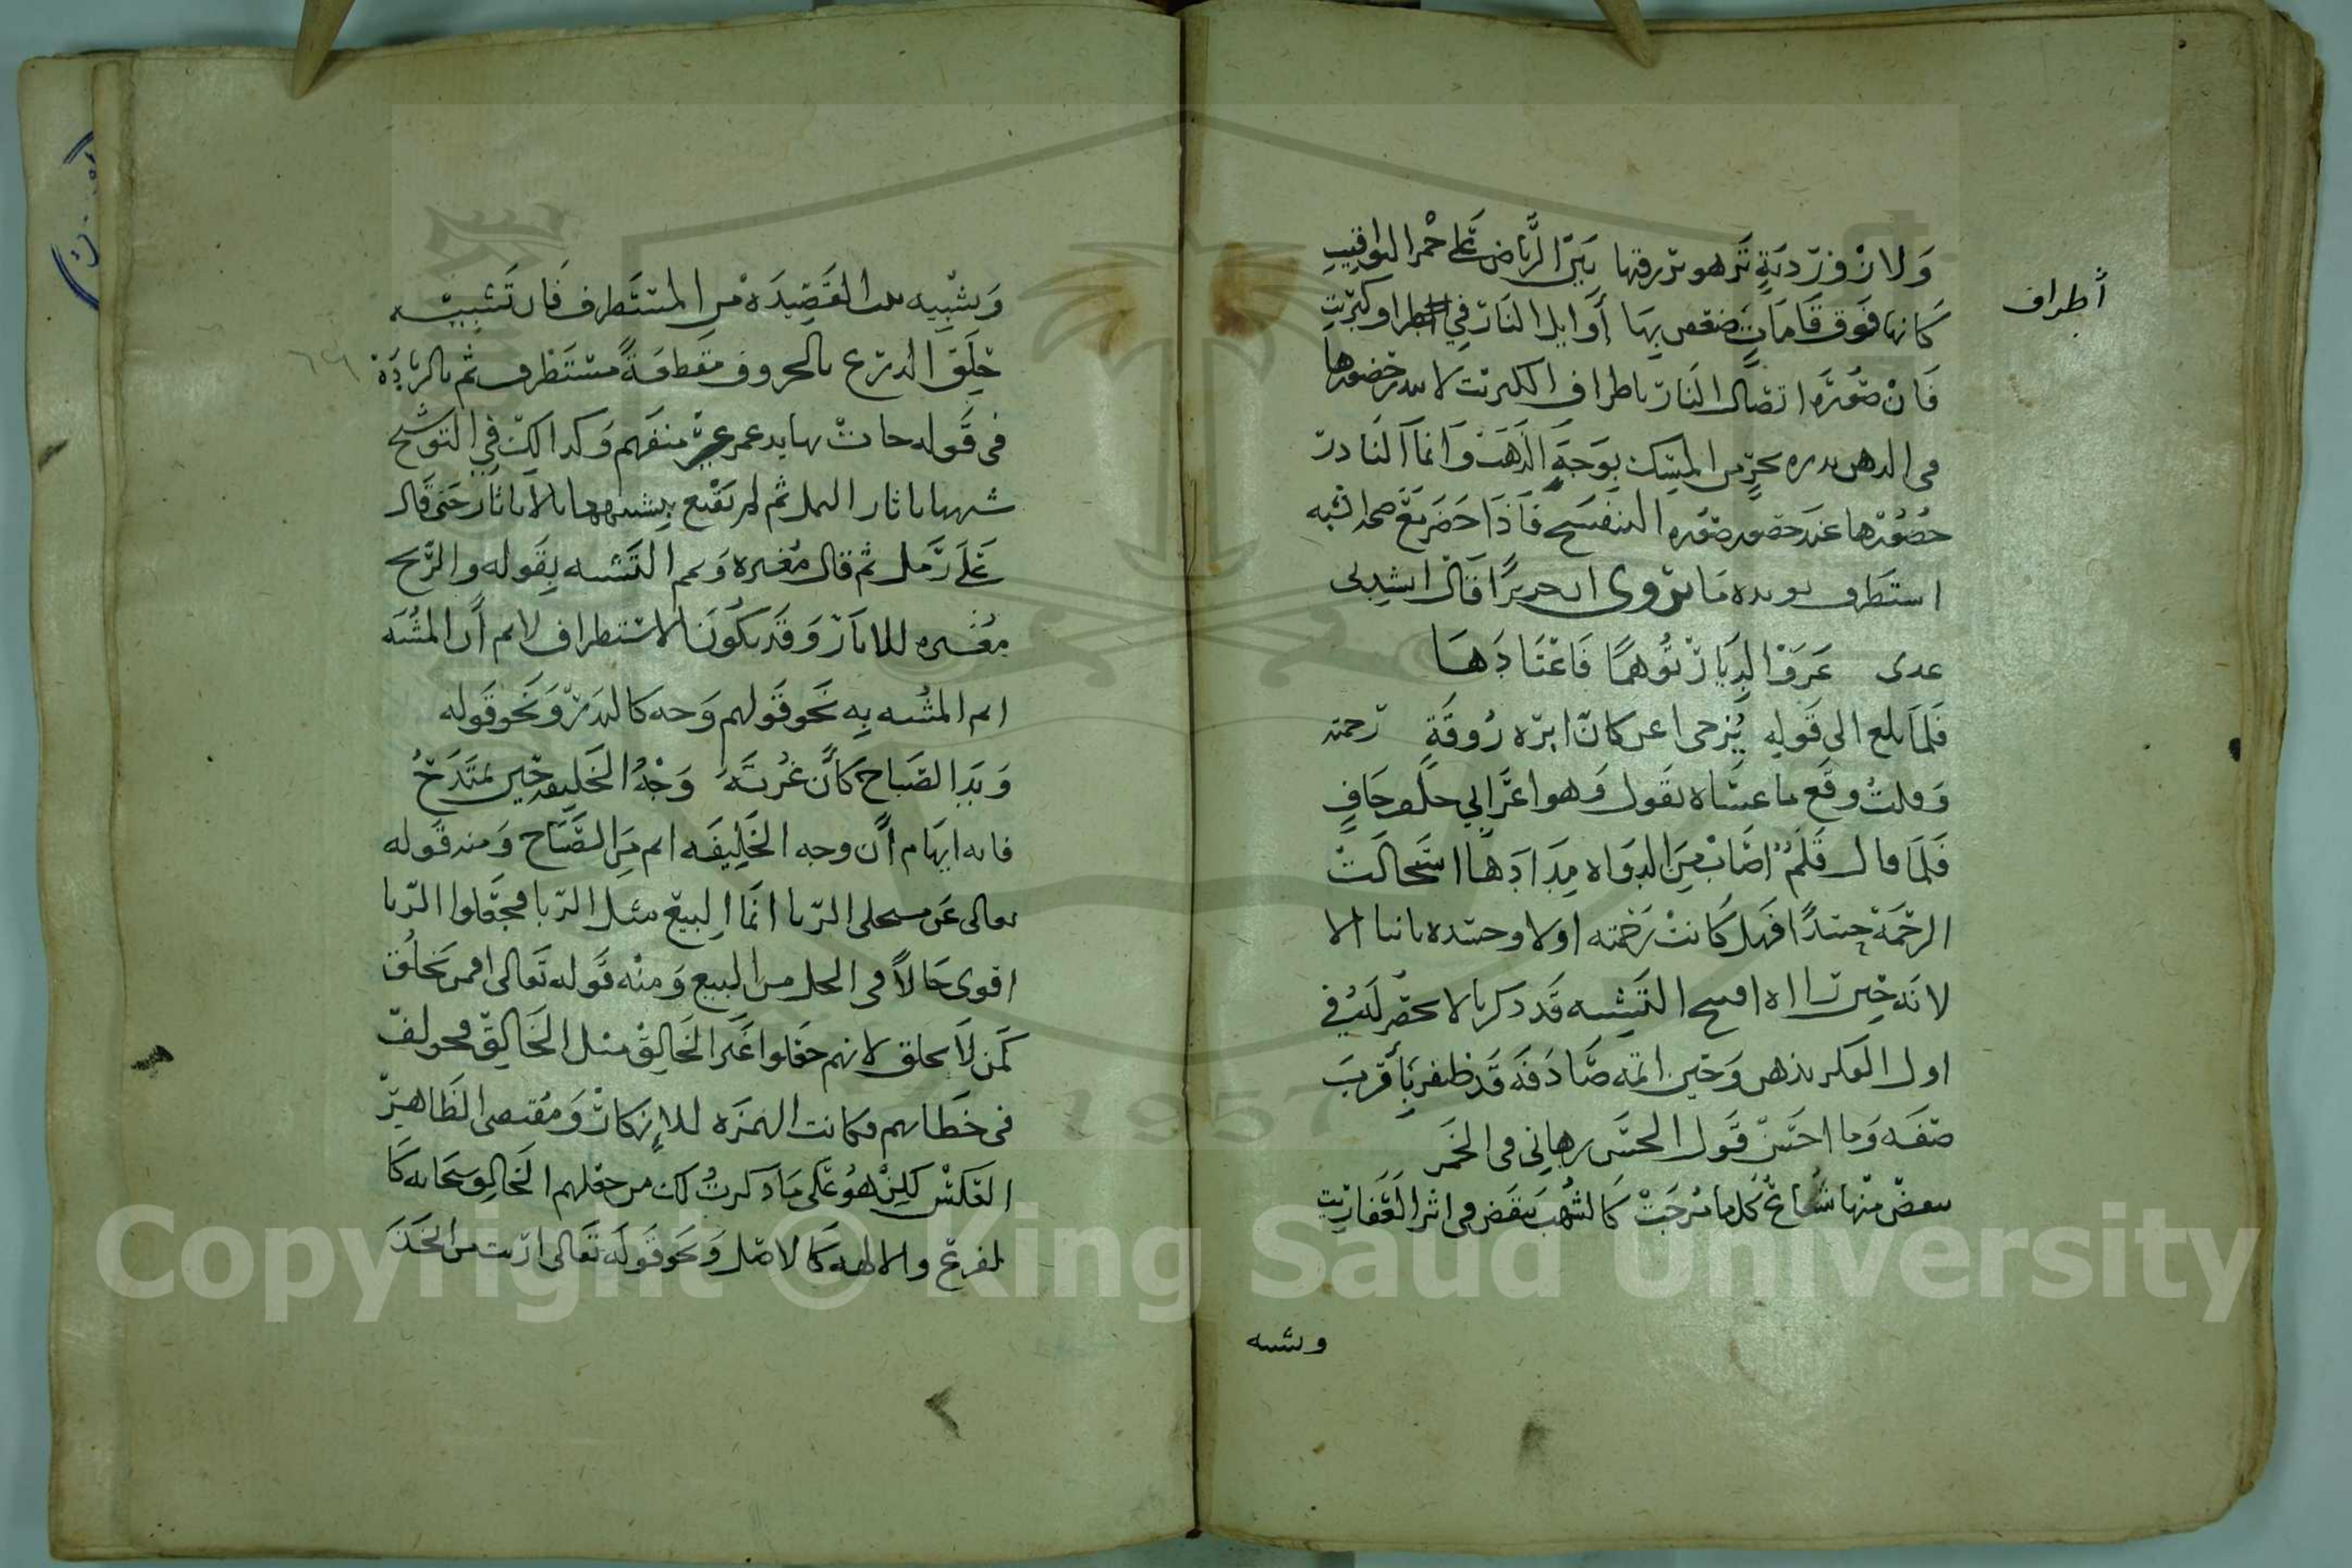 أطراف
وَلازوردِيَّةٍ تَزهو بزرقتها بَيْنَ الرِّياض عَلى حُمر اليواقيتِ
كَأنها فَوق قَامَاتٍ ضعفن بِهَا أَوَايل النَار في اطراف كبريتِ
فَان صُورَة اتصال النَار باطراف الكبريت لا يندر حضورها
في الذهن ندره بحرٍ من المِسك مَوجُهُ الذَّهَب وَانمَا النَادر
حُضُورها عند حضور صورة البنفسج فَاذَا حَضَر مَعَ صحة الشبه
استطرف يويده مَا يروى ان جريرًا قال انشدني
عدى عَرَفَ الدِيَارَ تَوُهمًا فَاعْتَادَهَا
فَلَمَّا بلغ الى قَولِهِ تُزجي اغن كَانَّ ابرَة رُوقَةٍ رحمته
وَقلتُ وقَع ما عساه يَقول وَهو اعرَابي جلف جَافٍ
فَلَمَا قال قَلَمٌ اصَابَ مِنَ الدواة مِدَادَهَا استَحالَتْ
الرحمَة حسدًا فهل كَانتْ رَحمته اولا وحسده ثانيا الا
لانه حِين رااه افتتح التَشبيه قَد ذكر ما لا يحضر لَه في
اول الفكر بذهن وَحين اتمه صَادَفَه قَد ظفر بِأَقرب
صفَه وَما احسَن قَول الحسَن بن هاني في الخَمر
ينقض مِنها شُعَاعٌ كلما مُزجَتْ كَالشُهبِ تنقَض في اثر العَفاريت
وتشبيه
وَتشبيه هذه القَصِيدَة مِن المستَطرف فَان تَشبِيه
حِلَق الدرع بالحروف مقطعَةً مستَظرف ثم بالزيَادَة
في قوله جاءت بها يد عمرٍ غير منفهم وَكذالِك في التوشيح
شبهها باثار النمل ثم لم يَقنع بِشبهها بالاثار حَتى قَال
عَلَى رَمل ثم قال مُغبره وَتمم التَشبيه بِقَوله والرِّيح
مغبره للاثَار وَقَد يكُونَ الاستطراف لايهام أَن المشُبه
اتم المشُبه بِه نَحو قَولهم وَجه كالبَدر وَنَحو قَوله
وَبَدا الصَبَاح كَأَن غُرتَهُ وَجْهُ الخَلِيفه حِين يمتَدحُ
فانه ايهَام أَن وجه الخَلِيفَه اتم مِن الصَّبَاح وَمنه قَوله
تعالى عَن مستحلى الرّبا انمَا البيع مثل الرّبا فجعَلوا الرّبا
اقوى حَالاً في الحل من البيع وَمنْه قَوله تَعالى افمن يَخلُق
كَمن لاَ يخلق لانهم جعَلوا غَير الخَالِق مثل الخَالِق فخولف
في خطابهم فكانت الهمزَه للإنكار وَمُقتضى الظَاهر
العَكس لكِن هُو عَلى مَا ذكرتُ لك من جعلهم الخَالِق سبحَانه كَا
لفرع والالهه كَالاصل وَنحو قَوله تَعَالى ارايت من اتخَذ